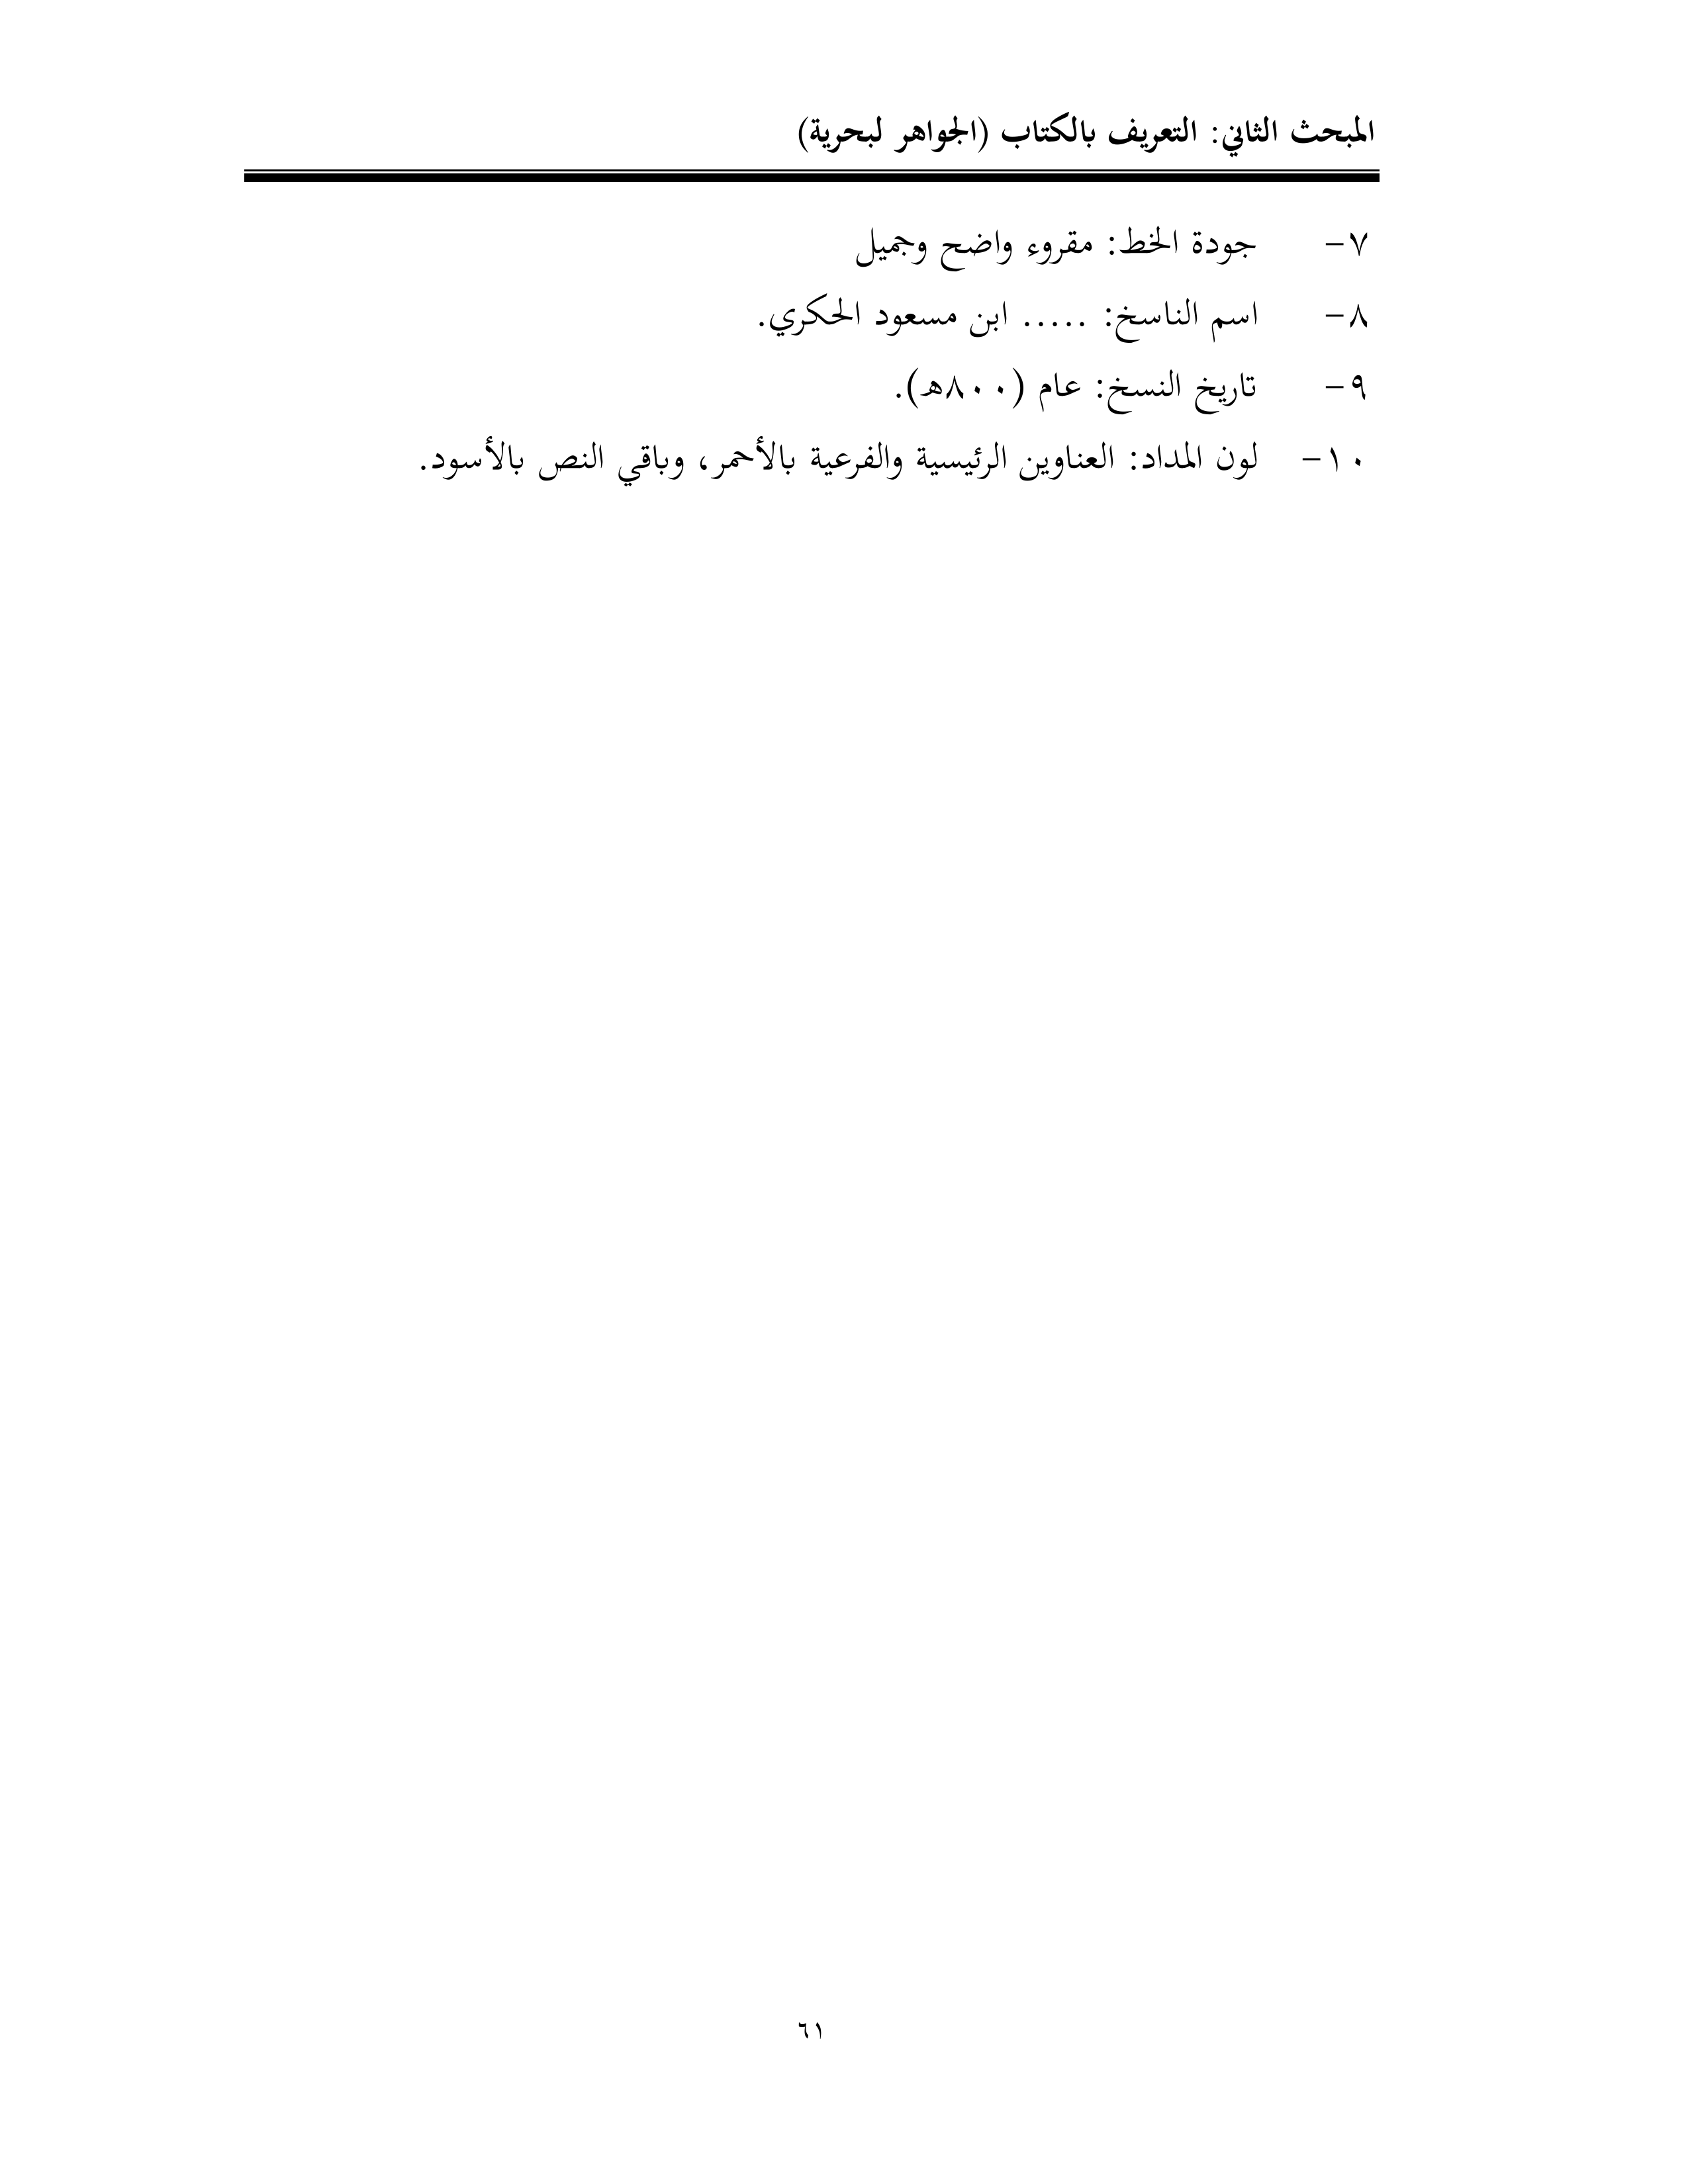 المبحث الثاني: التعريف بالكتاب (الجواهر لبحرية)
٧- جودة الخط: مقروء واضح وجميل
٨- اسم الناسخ: ..... ابن مسعود الحكري.
٩- تاريخ النسخ: عام (٨٠٠هـ).
١٠- لون المداد: العناوين الرئيسية والفرعية بالأحمر، وباقي النص بالأسود.
٦١